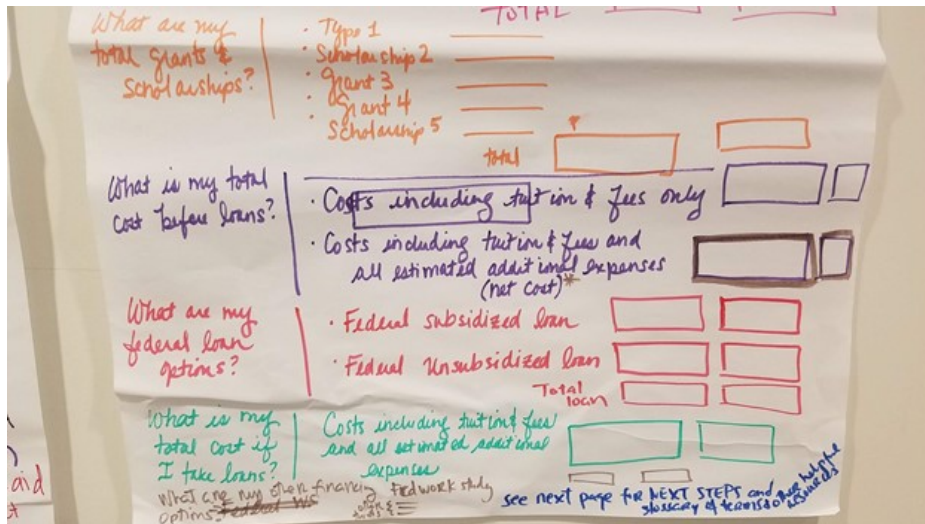 TOTAL
What are my
total grants &
Scholarships?
· Type 1
· Scholarship 2
· Grant 3
· Grant 4
· Scholarship 5
total
What is my total
cost before loans?
· Costs including tuition & fees only
· Costs including tuition & fees and
all estimated additional expenses
(net cost)*
What are my
federal loan
options?
· Federal subsidized loan
· Federal Unsubsidized loan
Total
loan
What is my
total cost if
I take loans?
Costs including tuition & fees
and all estimated additional
expenses
What are my other financing
options Federal WS
Fed work study
see next page for NEXT STEPS and
glossary of terms & other helpful
resources
aid